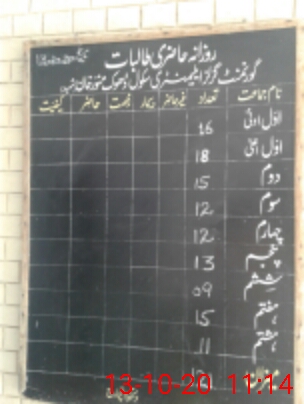 روزانہ حاضری طالبات
گورنمنٹ گرلز ایلیمنٹری سکول ڈھوک منور خان
نام جماعت تعداد غیر حاضر بیمار رخصت حاضر کیفیت
اول اولیٰ 16
اول اعلیٰ 18
دوم 15
سوم 12
چہارم 12
پنجم 13
ششم 09
ہفتم 15
ہشتم 11
13-10-20 11:14